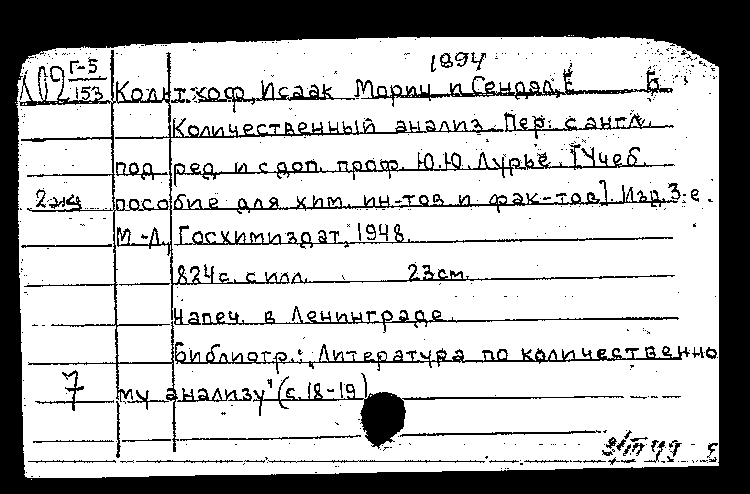 1894
102 Г-5
153
Кольтхоф, Исаак Мориц и Сендэл, Е Б.
Количественный анализ. Пер. с англ.
под ред и с доп. проф. Ю.Ю. Лурье. [Учеб.
2 экз пособие для хим. ин-тов и фак-тов]. Изд. 3-е.
М.-Л., Госхимиздат, 1948.
824 с. с илл. 23 см.
Напеч. в Ленинграде.
Библиогр.: "Литература по количественно
7 му анализу" (с. 18-19)
3/III 49